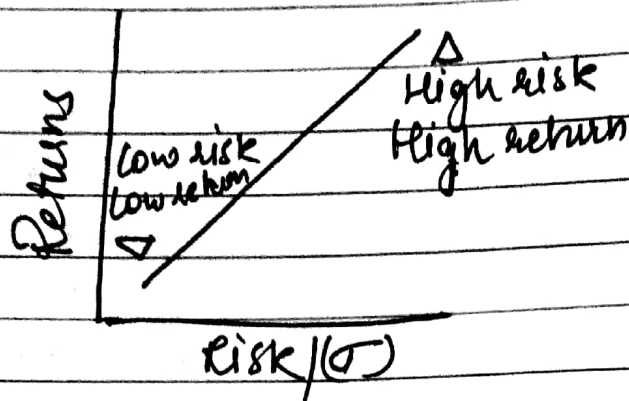 Returns
Low risk
Low return
High risk
High return
Risk/(σ)